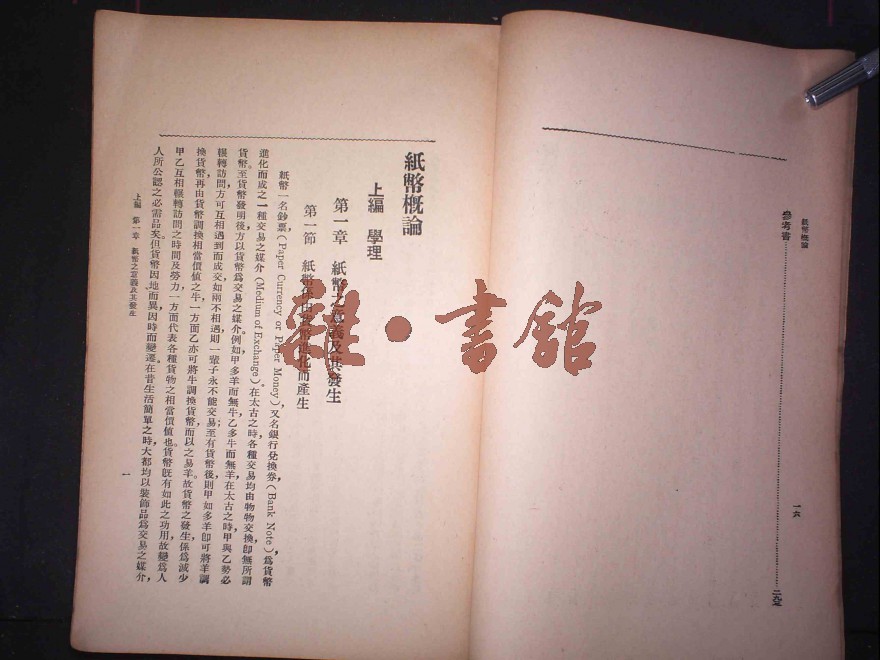 紙幣概論
參考書
一六
紙幣概論
上編　學理
第一章　紙幣之意義及其發生
第一節　紙幣係由貨幣進化而產生
紙幣一名鈔票(Paper Currency or Paper Money),又名銀行兌換券(Bank Note),爲貨幣
進化而成之一種交易之媒介(Medium of Exchange)。在太古之時,各種交易均由物物交換,卽無所謂
貨幣。至貨幣發明後,方以貨幣爲交易之媒介。例如甲多羊而無牛,乙多牛而無羊,在太古之時,甲與乙勢必
輾轉訪問,方可互相遇到而成交,如兩不相遇,則一輩子永不能交易;至有貨幣後,則甲如多羊,卽可將羊調
換貨幣,再由貨幣調換相當價値之牛,一方面乙亦可將牛調換貨幣,而以之易羊。故貨幣之發生,係爲減少
甲乙互相輾轉訪問之時間及勞力,一方面代表各種貨物之相當價値也。貨幣旣有如此之功用,故變爲人
人所公認之必需品矣。但貨幣因地而異,因時而變遷,在昔生活簡單之時,大都均以裝飾品爲交易之媒介,
上編　第一章　紙幣之意義及其發生
一
雜·書館